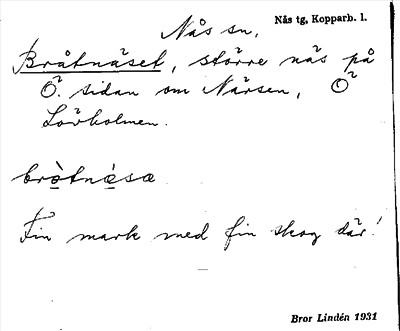 Nås sn, Nås tg, Kopparb. l.
Bråtnäset, större näs på
Ö. sidan om Närsen, Ö
Lövholmen.
bròtnésæ
Fin mark med fin skog där!
Bror Lindén 1931